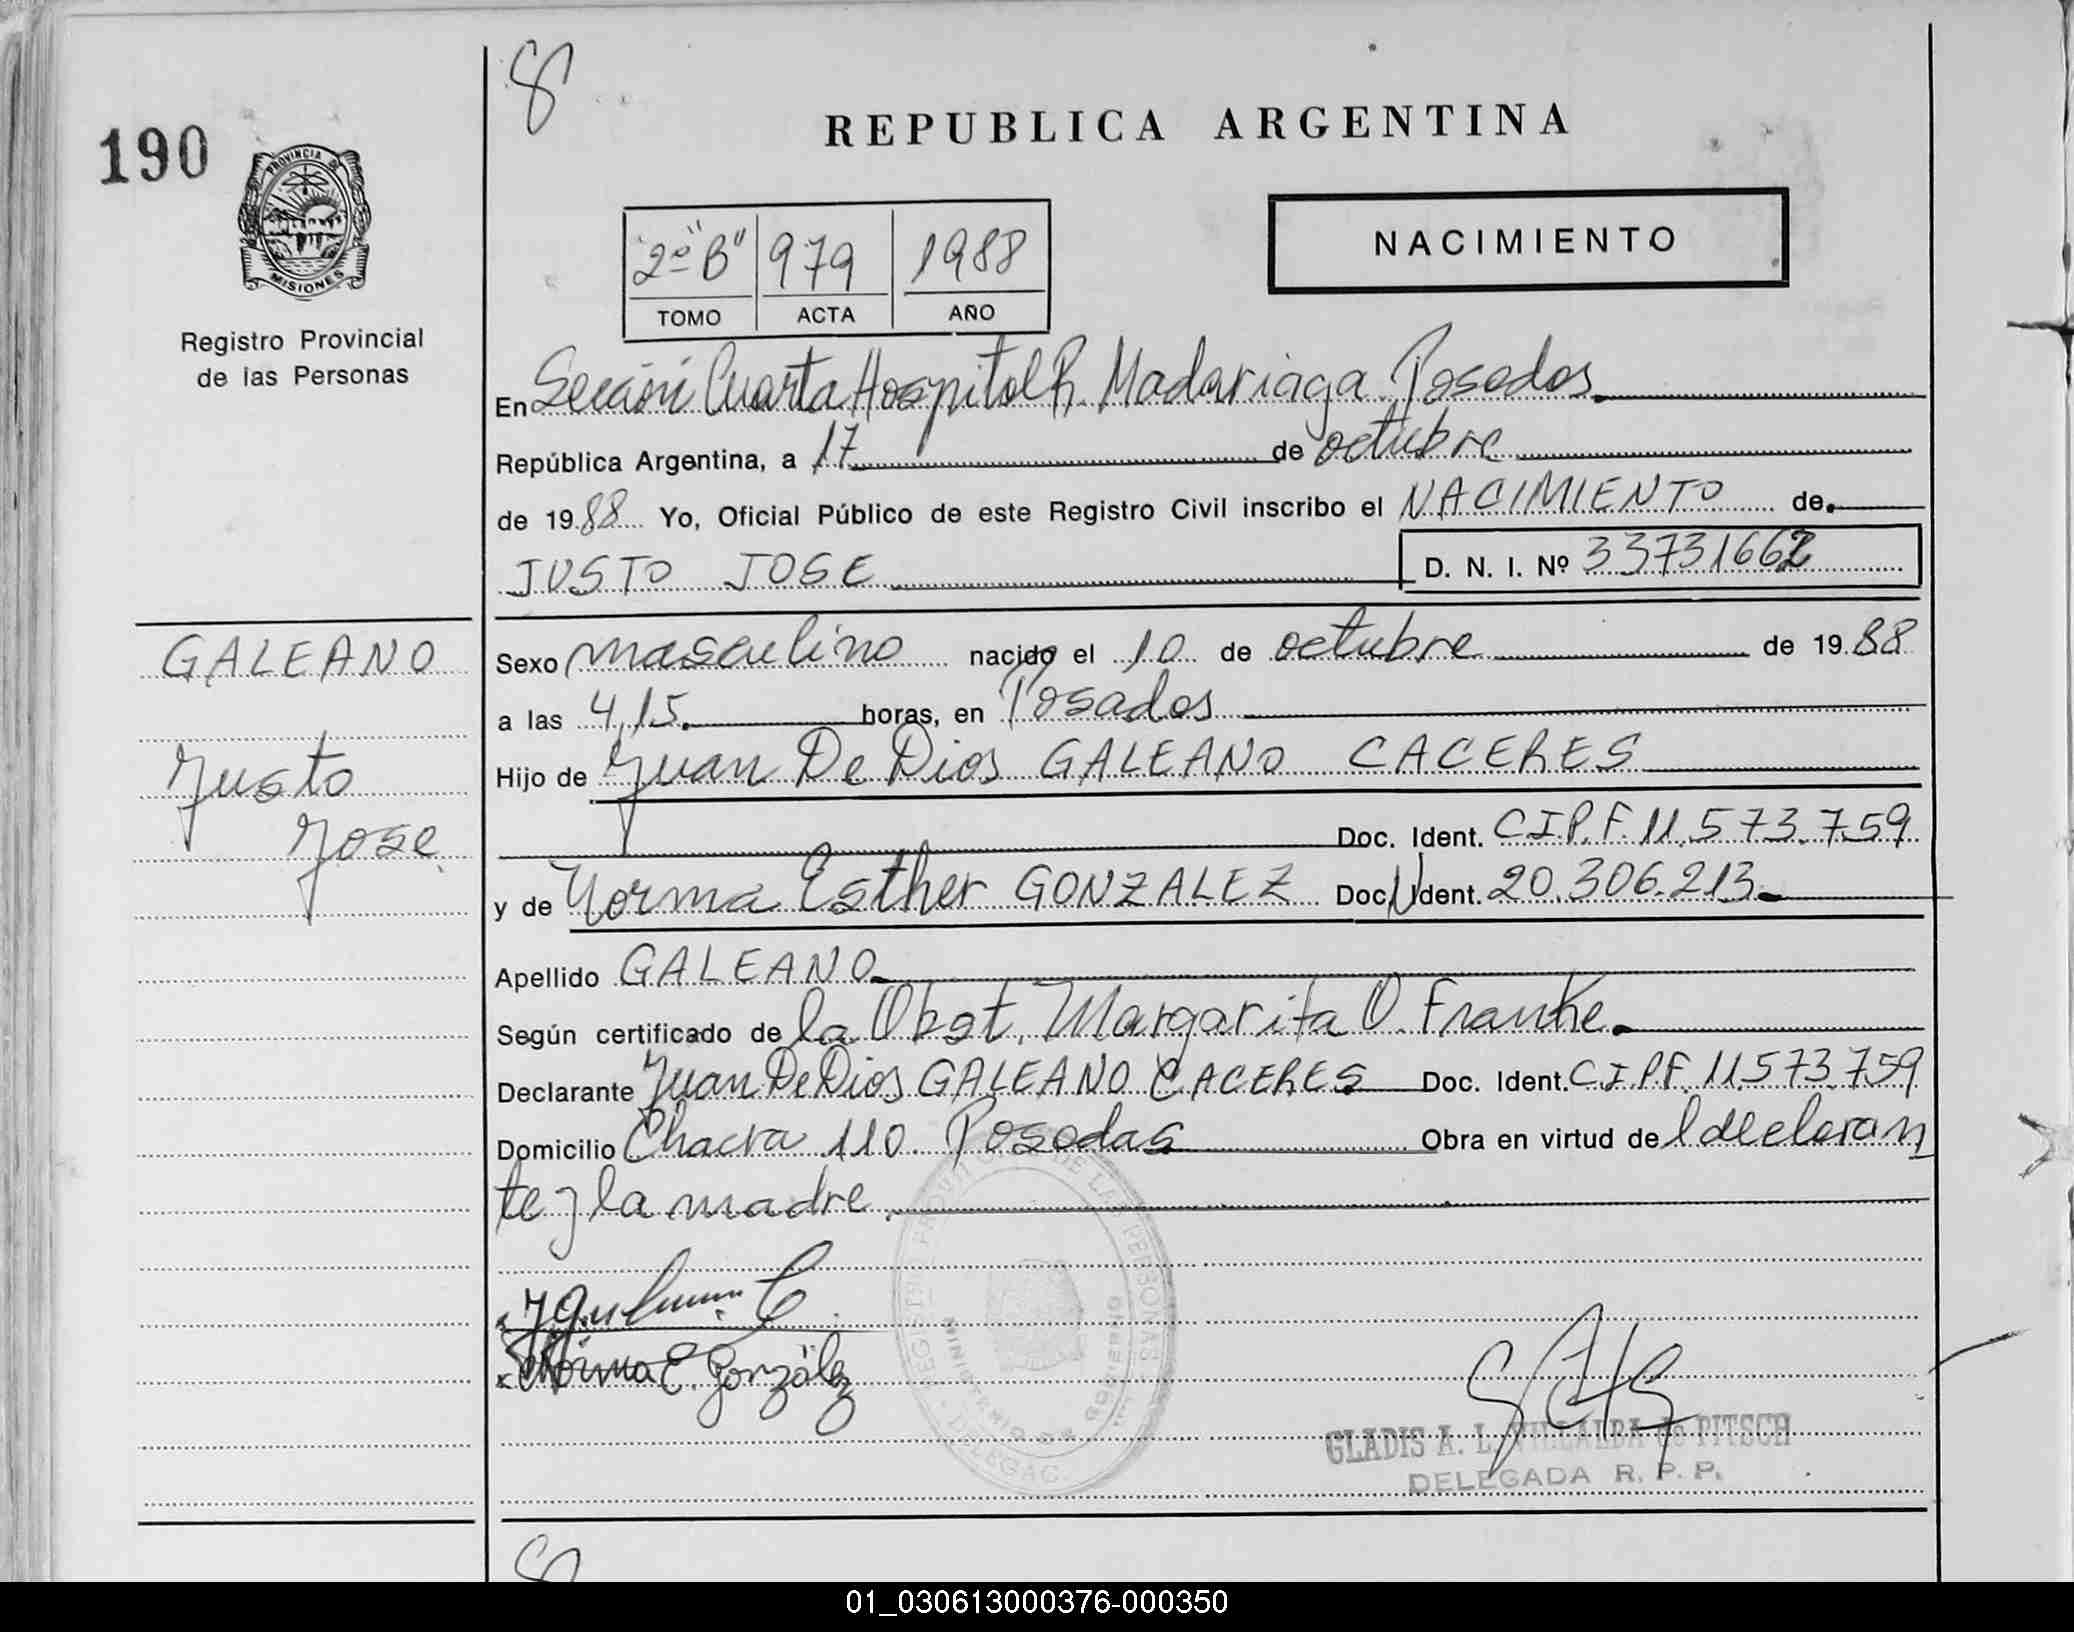 190
PROVINCIA DE
MISIONES
Registro Provincial
de las Personas
8
REPUBLICA ARGENTINA
2º "B" 979 1988
TOMO ACTA AÑO
NACIMIENTO
En Sección Cuarta Hospital R. Madariaga Posadas
República Argentina, a 17 de octubre
de 1988 Yo, Oficial Público de este Registro Civil inscribo el NACIMIENTO de
JUSTO JOSE D. N. I. Nº 33731662
GALEANO
Justo
Jose
Sexo masculino nacido el 10 de octubre de 1988
a las 4,15 horas, en Posadas
Hijo de Juan De Dios GALEANO CACERES
Doc. Ident. C.I.P.F. 11.573.759
y de Norma Esther GONZALEZ Doc. Ident. 20.306.213
Apellido GALEANO
Según certificado de la Obst. Margarita O Franke
Declarante Juan De Dios GALEANO CACERES Doc. Ident. C.I.P.F. 11.573.759
Domicilio Chacra 110. Posadas Obra en virtud de l declaran
te y la madre
Norma E. González
REGISTRO PROVINCIAL DE LAS PERSONAS
MINISTERIO DE GOBIERNO
DELEGAC.
GLADIS A. L. VILLALBA de PITSCH
DELEGADA R. P. P.
01_030613000376-000350